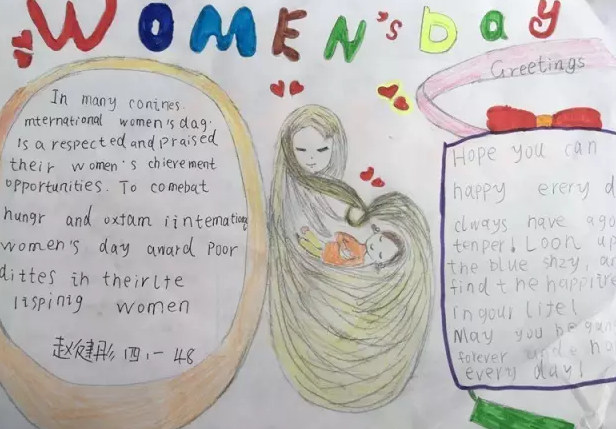 WOMEN'S DAY
In many conines.
nternational women's dag.
is a respected and praised
their women's chierement
opportunities. To comebat
hungr and oxtam iinternationg
women's day award poor
dittes in theirlte
lisping women
赵健彤, 四,一 48
Greetings
Hope you can
happy erery d
clways have ago
tenper! Loon up
the blue shzy, an
find the happitre
in your lite!
May you be
forever
every day!